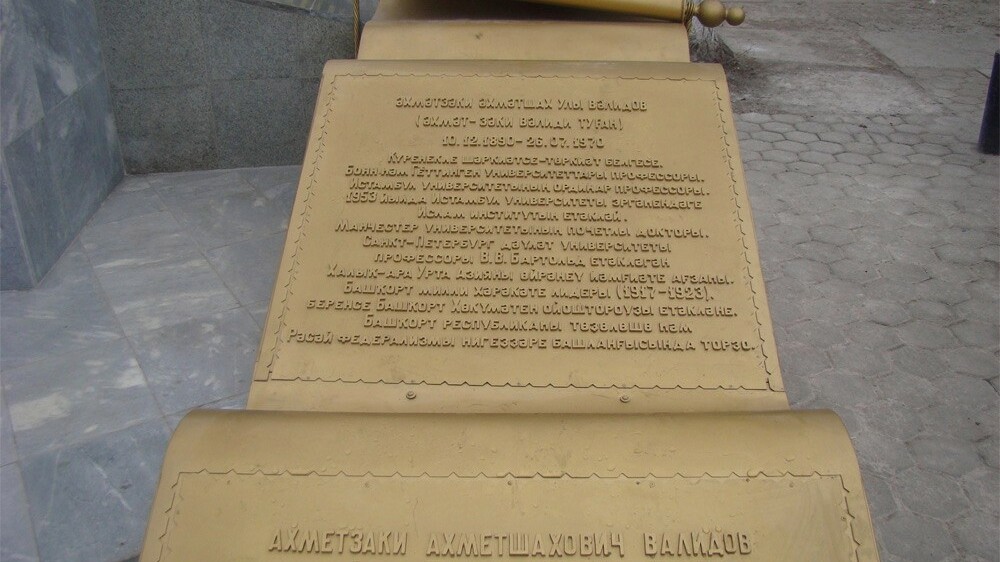 ӘХМӘТЗӘКИ ӘХМӘТШАХ УЛЫ ВӘЛИДОВ
(ӘХМӘТ-ЗӘКИ ВӘЛИДИ ТУҒАН)
10.12.1890-26.07.1970
КҮРЕНЕКЛЕ ШӘРКИӘТСЕ-ТӨРКИӘТ БЕЛГЕСЕ.
БОНН ҺӘМ ГЕТТИНГЕН УНИВЕРСИТЕТТАРЫ ПРОФЕССОРЫ.
ИСТАМБУЛ УНИВЕРСИТЕТЫНЫҢ ОРДИНАР ПРОФЕССОРЫ.
1953 ЙЫЛДА ИСТАМБУЛ УНИВЕРСИТЕТЫ ЭРГӘҺЕНДӘГЕ
ИСЛАМ ИНСТИТУТЫН ЕТӘКЛӘЙ.
МАНЧЕСТЕР УНИВЕРСИТЕТЫНЫҢ ПОЧЕТЛЫ ДОКТОРЫ.
САНКТ-ПЕТЕРБУРГ ДӘҮЛӘТ УНИВЕРСИТЕТЫ
ПРОФЕССОРЫ В.В. БАРТОЛЬД ЕТӘКЛӘГӘН
ХАЛЫК-АРА УРТА АЗИЯНЫ ӨЙРӘНЕҮ ЙӘМҒИӘТЕ АҒЗАҺЫ.
БАШҠОРТ МИЛЛИ ХӘРӘКӘТЕ ЛИДЕРЫ (1917-1923).
БЕРЕНСЕ БАШҠОРТ ХӨКҮМӘТЕН ОЙОШТОРОУЗЫ ЕТӘКЛӘНЕ.
БАШҠОРТ РЕСПУБЛИКАҺЫ ТӨЗӨЛӨШӨ ҺӘМ
РӘСӘЙ ФЕДЕРАЛИЗМЫ НИГЕЗЗӘРЕ БАШЛАНҒЫСЫНДА ТОРЗО.
АХМЕТЗАКИ АХМЕТШАХОВИЧ ВАЛИДОВ